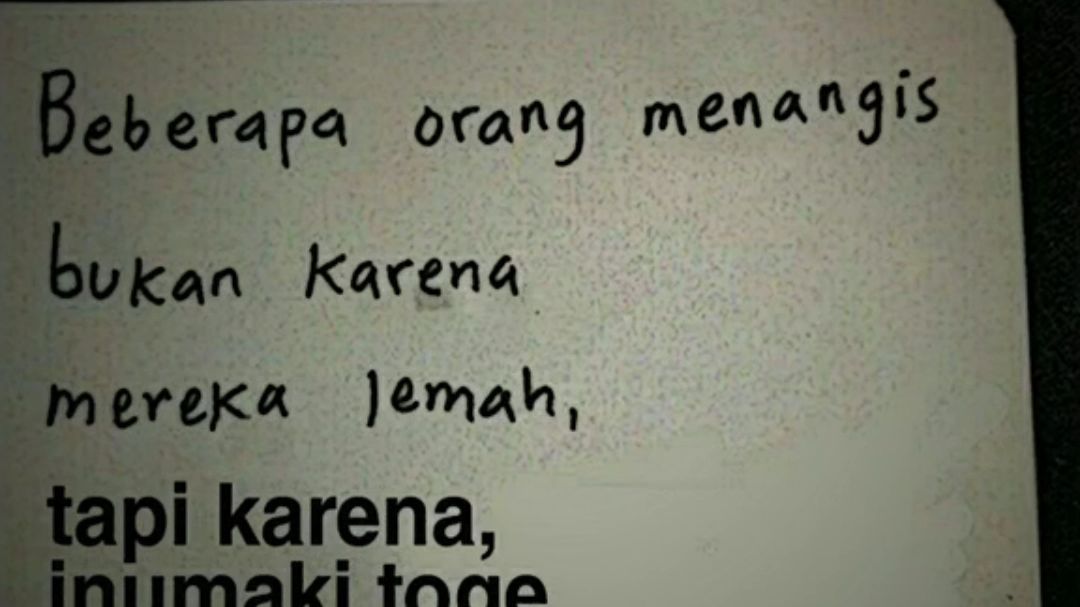 Beberapa orang menangis
bukan karena
mereka lemah,
tapi karena,
inumaki toge